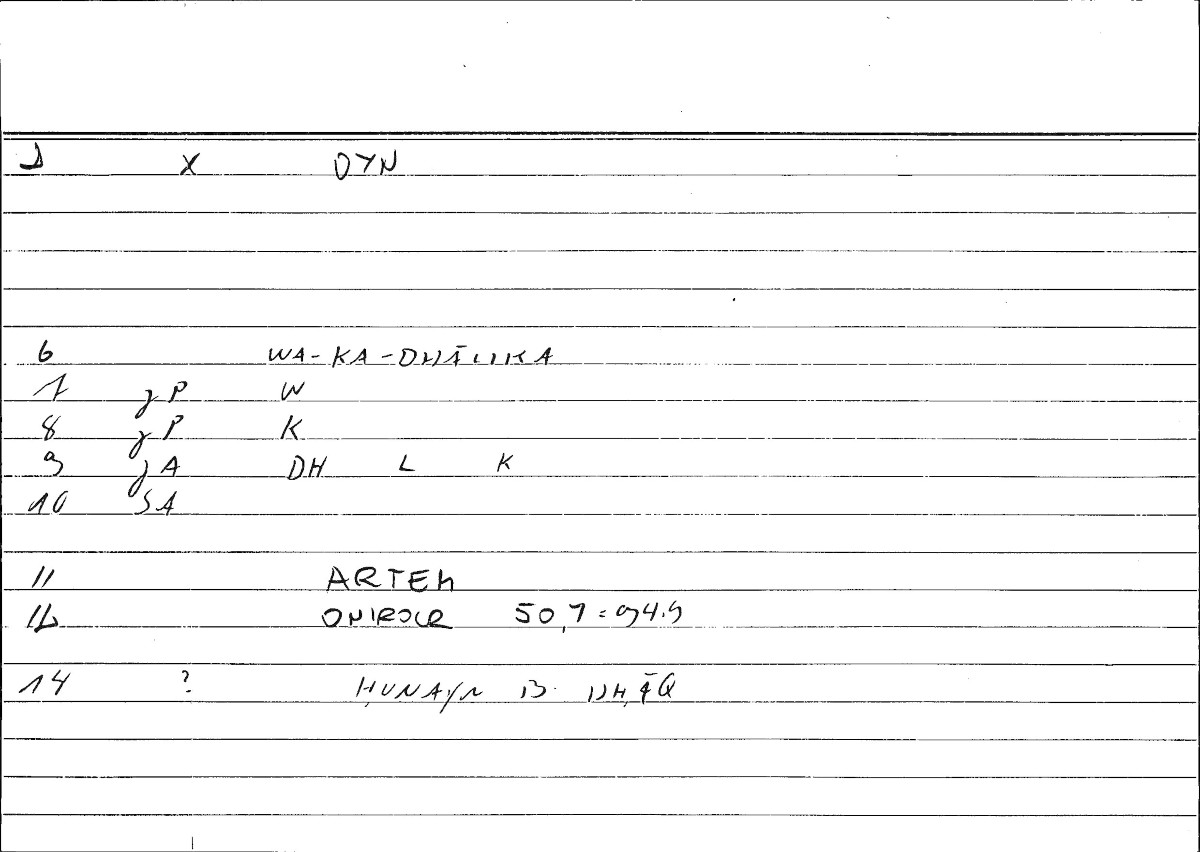 1 X DYN
6 WA-KA-DHĀLIKA
7 gP W
8 gP K
9 gA DH L K
10 SA
11 ARTEM
12 ONIROCR 50,7=94.9
14 ? ḤUNAYN B.